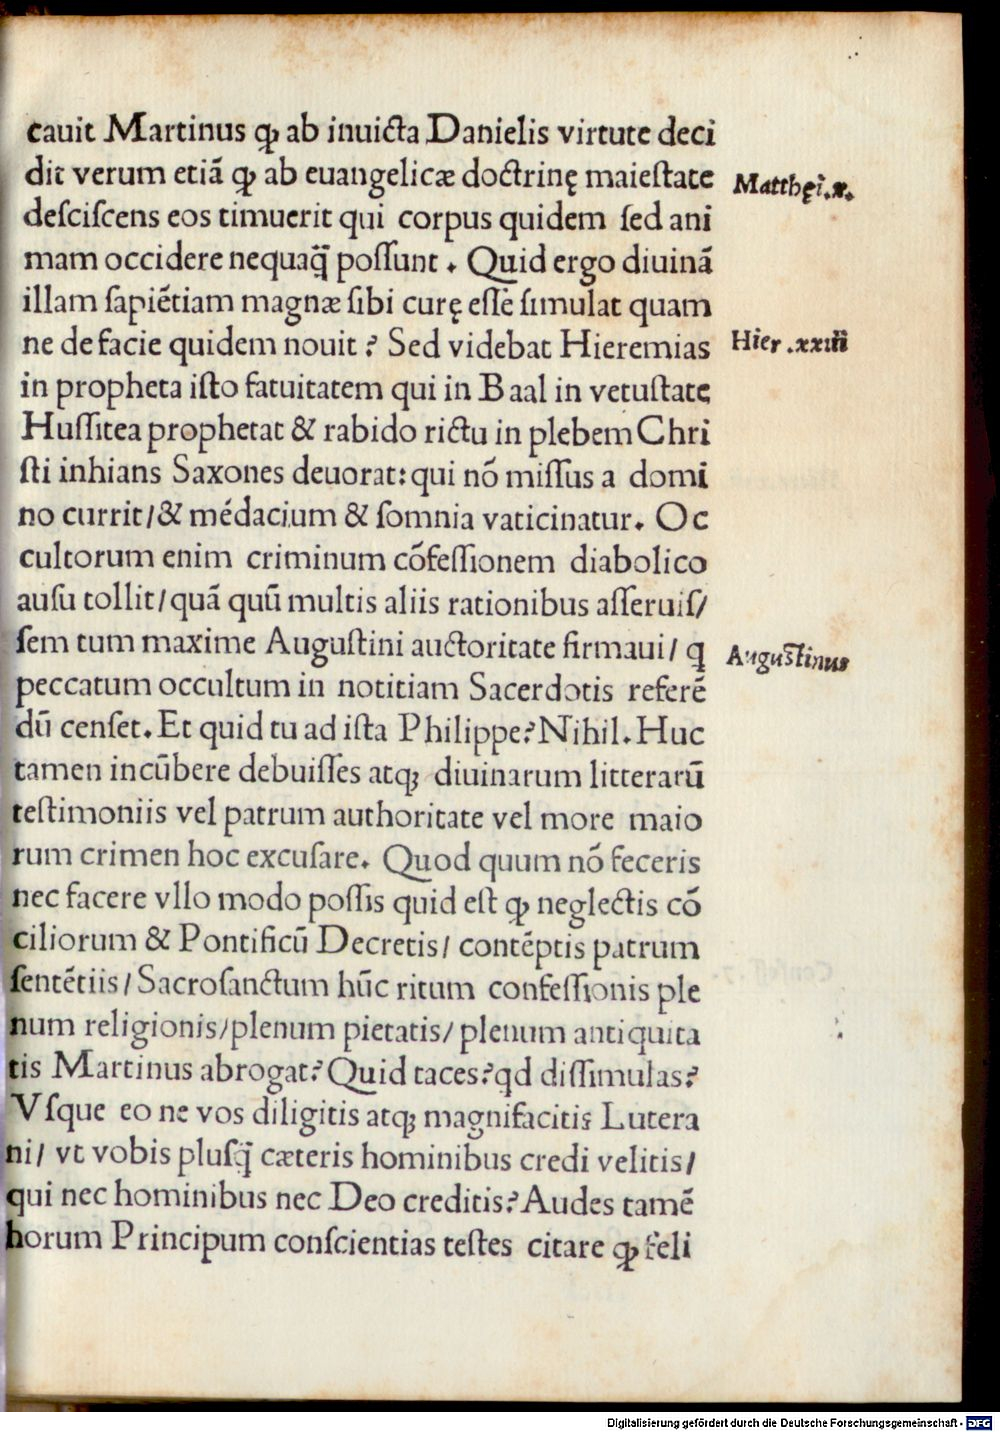 cauit Martinus ꝙ ab inuicta Danielis virtute deci
dit verum etiā ꝙ ab euangelicæ doctrinę maieſtate
deſciſcens eos timuerit qui corpus quidem ſed ani
mam occidere nequaq̃ poſſunt . Quid ergo diuinā
illam ſapiētiam magnæ ſibi curę eſſe ſimulat quam
ne de facie quidem nouit ? Sed videbat Hieremias
in propheta iſto fatuitatem qui in Baal in vetuſtate
Huſſitea prophetat & rabido rictu in plebem Chri
ſti inhians Saxones deuorat: qui nō miſſus a domi
no currit/& mēdacium & ſomnia vaticinatur. Oc
cultorum enim criminum cōfeſſionem diabolico
auſu tollit/quā quū multis aliis rationibus aſſeruiſ/
ſem tum maxime Auguſtini auctoritate firmaui/ q
peccatum occultum in notitiam Sacerdotis referē
dū cenſet. Et quid tu ad iſta Philippe? Nihil. Huc
tamen incūbere debuiſſes atqꝫ diuinarum litterarū
teſtimoniis vel patrum authoritate vel more maio
rum crimen hoc excuſare. Quod quum nō feceris
nec facere vllo modo poſſis quid eſt ꝙ neglectis cō
ciliorum & Pontificū Decretis/ contēptis patrum
ſentētiis/Sacroſanctum hūc ritum confeſſionis ple
num religionis/plenum pietatis/plenum antiquita
tis Martinus abrogat? Quid taces? qd diſſimulas?
Vſque eo ne vos diligitis atqꝫ magnifacitis Lutera
ni/ vt vobis pluſq̃ cæteris hominibus credi velitis/
qui nec hominibus nec Deo creditis? Audes tamē
horum Principum conſcientias teſtes citare ꝙ feli
Matthęi.x.
Hier.xxiii
Auguſtinus
Digitalisierung gefördert durch die Deutsche Forschungsgemeinschaft - DFG